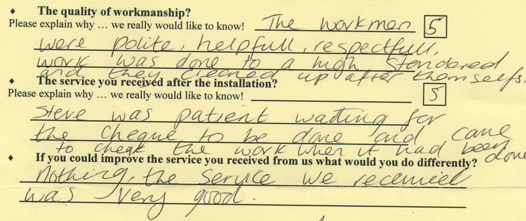 ♦ The quality of workmanship?
Please explain why ... we really would like to know! The workmen 5
were polite, helpfull, respectfull,
work was done to a high standered
and they cleaned up after themselfs.
♦ The service you received after the installation?
Please explain why ... we really would like to know! 5
Steve was patient waiting for
the cheque to be done and came
to cheak the work when it had been done
♦ If you could improve the service you received from us what would you do differently?
nothing, the service we receivied
was very good.